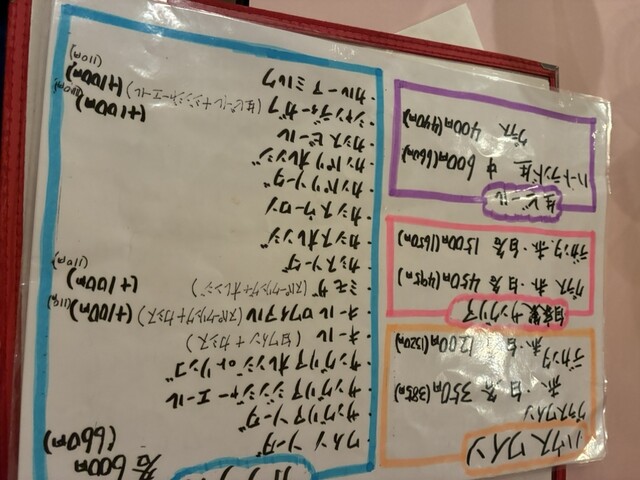 ハウスワイン
グラスワイン
赤・白 各350円(385円)
デカンタ
赤・白 各1200円(1320円)
自家製サングリア
グラス 赤・白 各450円(495円)
デカンタ 赤・白 各1500円(1650円)
生ビール
ハートランド生 中 600円(660円)
グラス 400円(440円)
各600円
(660円)
・ワインソーダ
・サングリアソーダ
・サングリアジンジャーエール
・サングリアオレンジorリンゴ
・キール (白ワイン+カシス)
・キールロワイアル(スパークリング+カシス) (+100円)
(110円)
・ミモザ (スパークリング+オレンジ) (+100円)
(110円)
・カシスソーダ
・カシスオレンジ
・カシスウーロン
・カンパリソーダ
・カンパリオレンジ
・カシスビール
・シャンディーガフ (生ビール+ジンジャーエール) (+100円)
(110円)
・カルーアミルク (+100円)
(110円)